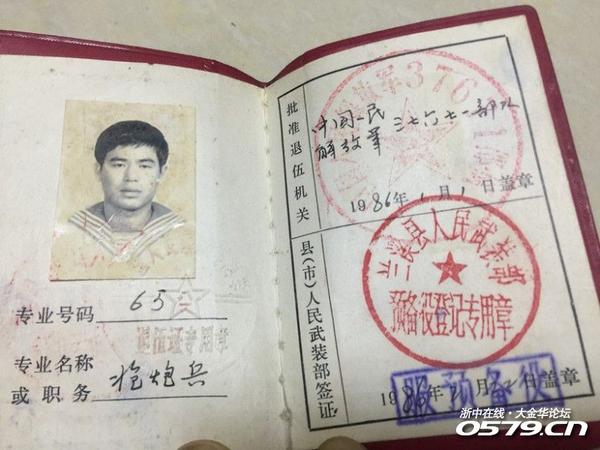 专业号码 65
专业名称
或职务 枪炮兵
批准退伍机关
中国人民
解放军三七六七一部队
1986年1月1日盖章
县(市)人民武装部签证
兰溪县人民武装部
预备役登记专用章
服预备役
日盖章
浙中在线·大金华论坛
0579.cn